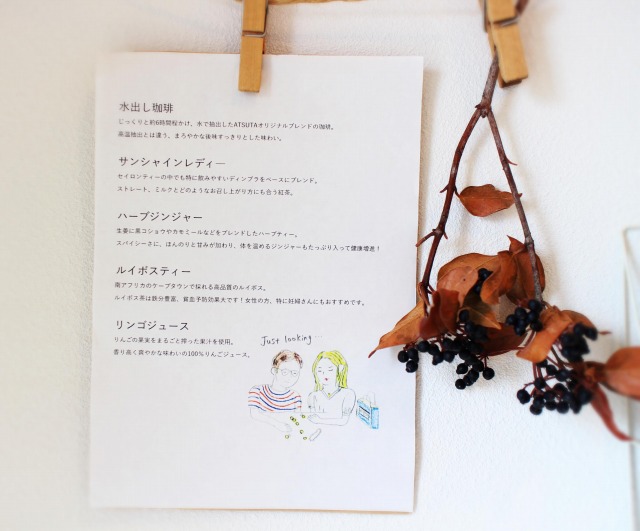 水出し珈琲
じっくりと約6時間程かけ、水で抽出したATSUTAオリジナルブレンドの珈琲。
高温抽出とは違う、まろやかな後味すっきりとした味わい。
サンシャインレディー
セイロンティーの中でも特に飲みやすいディンブラをベースにブレンド。
ストレート、ミルクとどのようなお召し上がり方にも合う紅茶。
ハーブジンジャー
生姜に黒コショウやカモミールなどをブレンドしたハーブティー。
スパイシーさに、ほんのりと甘みが加わり、体を温めるジンジャーもたっぷり入って健康増進！
ルイボスティー
南アフリカのケープタウンで採れる高品質のルイボス。
ルイボス茶は鉄分豊富、貧血予防効果大です！女性の方、特に妊婦さんにもおすすめです。
リンゴジュース
りんごの果実をまるごと搾った果汁を使用。
香り高く爽やかな味わいの100％りんごジュース。
Just looking